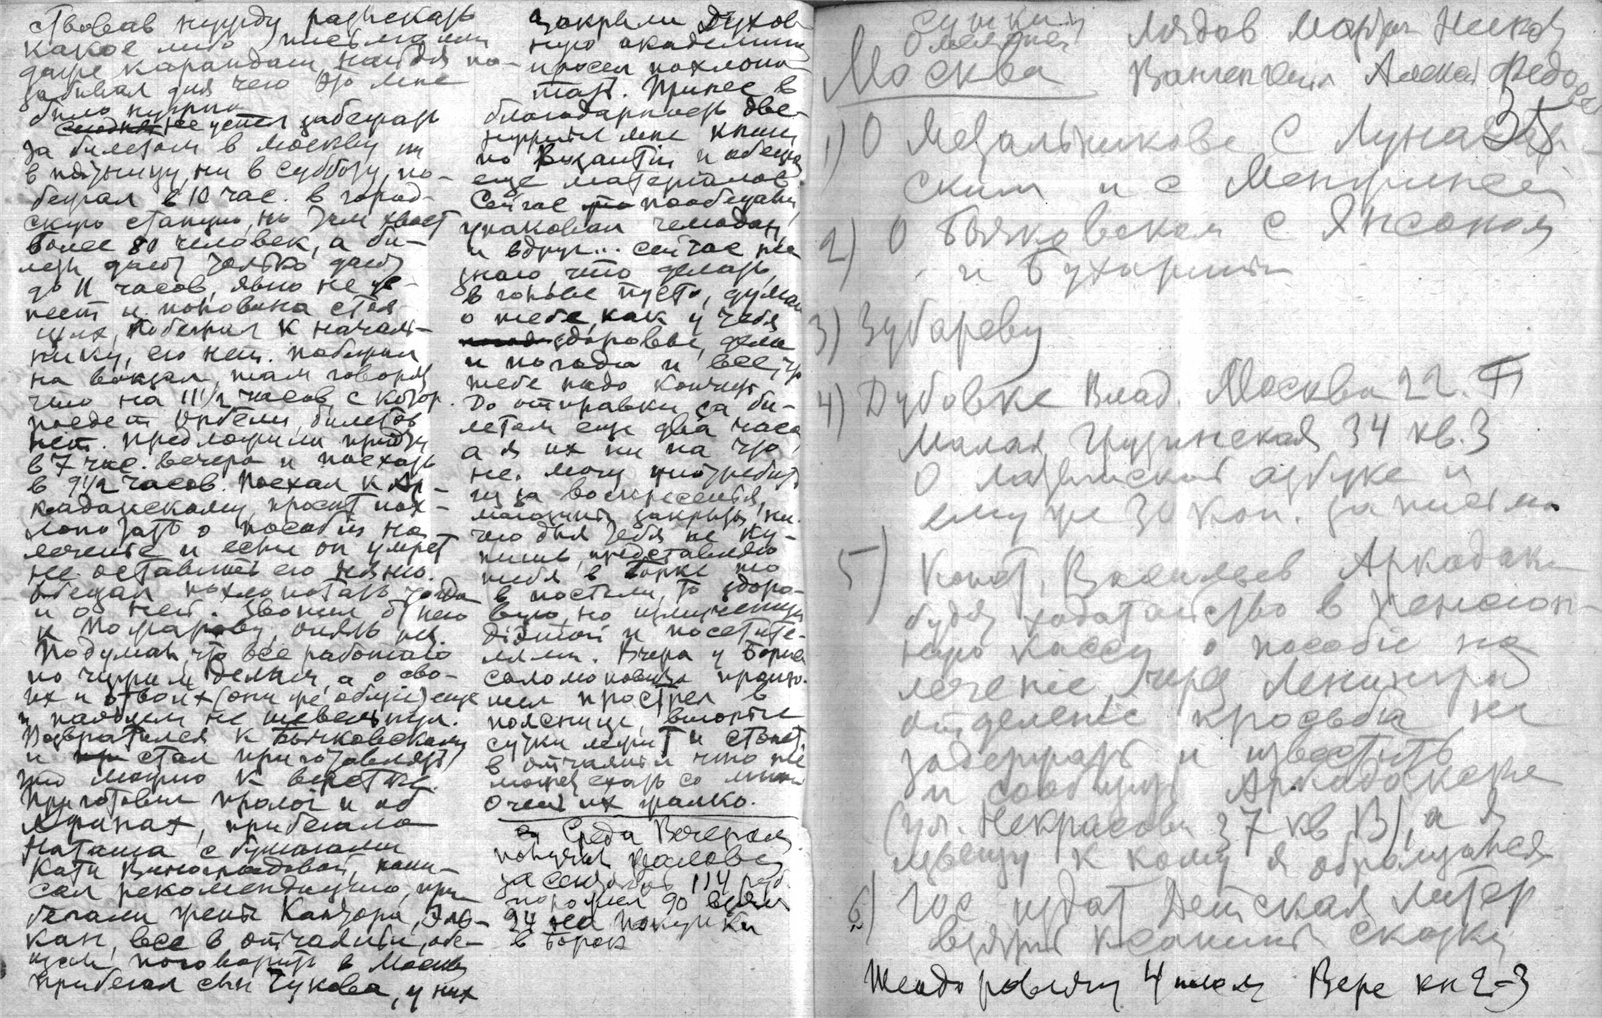 ствовав нужду разыскать
какое либо письмо или
даже карандаш, найдя по-
забывал для чего это мне
было нужно
не успел забежать
за билетом в Москву ни
в пятницу, ни в субботу, по-
бежал в 10 час. в город-
скую станцию, но там хвост
более 80 человек, а би-
леты дают только
до 11 часов, явно не
и половина стоя
щих, побежал к началь-
нику, его нет. побежал
на вокзал, там говорят
что на 11 1/2 часов, с котор.
поедет Орбели, билетов
нет. предложили придти
в 7 час. вечера и поехать
в 9 1/2 часов. Поехал к Ар-
кадакскому, просит пох-
лопотать о пособии на
лечение и если он умрет
не оставить его няню.
обещал похлопотать тогда
и о ней. Звонил от него
к Пожарову, опять нет.
Подумай, что все работаю
по чужим делам, а о сво-
их и твоих (они же общие) еще
и пальцем не шевельнул.
Возвратился к Бычковскому
и стал приготовлять
что можно к верстке.
Приготовил пролог и об
Афинах, прибегала
Наташа с бумагами
Кати Виноградовой, напи-
сал рекомендацию, при
бегали жены Кантора,
кан, все в отчаянии, обе-
щал поговорить в Москве
прибегал сын Чукова, у них
закрыли Духов
ную академию
просил похлопо
тать. Принес в
благодарность две
нужные мне книги
по Византии и обещал
еще материалов
Сейчас пообедали,
упаковал чемодан,
и вдруг... сейчас не
знаю что делать,
в голове пусто, думаю
о тебе, как у тебя
здоровье, дела
и погода и все, что
тебе надо кончить
До отправки за би-
летом еще два часа
а я их ни на что
не могу употребить
из за воскресенья
магазины закрыты, ни-
чего для тебя не ку-
пишь, представляю
тебя в Борке то
в постели, то здоро-
вую, но измученную
и посетите-
лями. Вчера у Бориса
Соломоновича произо-
шел прострел в
пояснице, вторые
сутки лежит и стонет.
в отчаянии что не
может ехать со мной
Очень их жалко.
Среда Вечером
получил жалованье
за сентябрь 114 руб.
90 взял
24 на покупки
в Борок
Лядов Мартын Никол
Москва Алексей Федоров
35
1) О Мезальникове С Луначар-
ским и с Менжинской
2) О Бычковском с Янсоном
и Бухариным
3) Зубареву
4) Дубовке Влад. Москва 22.
Малая Грузинская 34 кв. 3
О латинской азбуке и
ему же 30 коп. за письмо.
5) Васильев Аркадакс
будет ходатайство в Пенсион-
ную кассу о пособии на
лечение, через Ленинград
отделение просьба не
задержать и известить
и сообщить Аркадакскому
(ул. Некрасова 37 кв В), а я
извещу к кому я обращался
6) Гос издат Детская литер
взять Ксаныны сказки
4 Вере кн 2-3